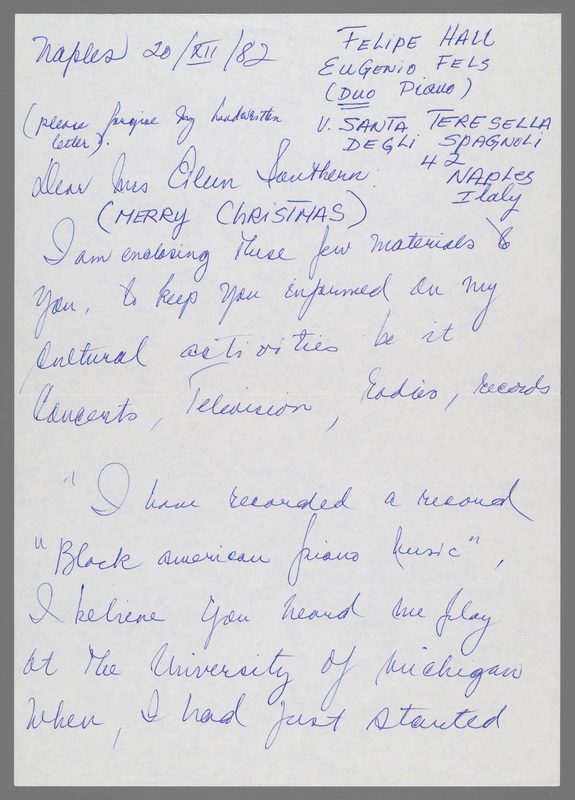 Naples 20/XII/82
FELIPE HALL
EUGENIO FELS
(DUO Piano)
V. SANTA TERESELLA
DEGLI SPAGNOLI
42
NAPLES
Italy
(please forgive my handwritten
letter).
Dear Mrs Eileen Southern.
(MERRY CHRISTMAS)
I am enclosing these few materials to
you, to keep you informed on my
cultural activities be it
Concerts, Television, Radios, records
" I have recorded a record
"Black american piano music",
I believe you heard me play
at the University of Michigan
when, I had just started